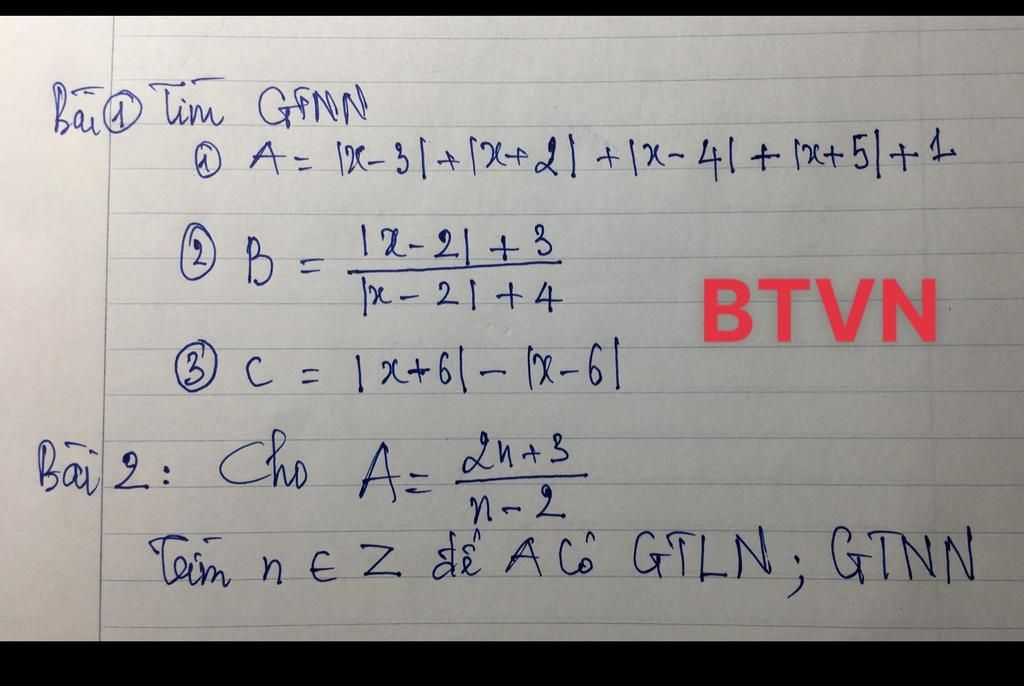 Bài ① Tìm GTNN
① A = |x-3| + |x+2| + |x-4| + |x+5| + 1
② B = |x-2| + 3 / |x-2| + 4
BTVN
③ C = |x+6| - |x-6|
Bài 2: Cho A = 2n+3 / n-2
Tìm n ∈ Z để A có GTLN; GTNN